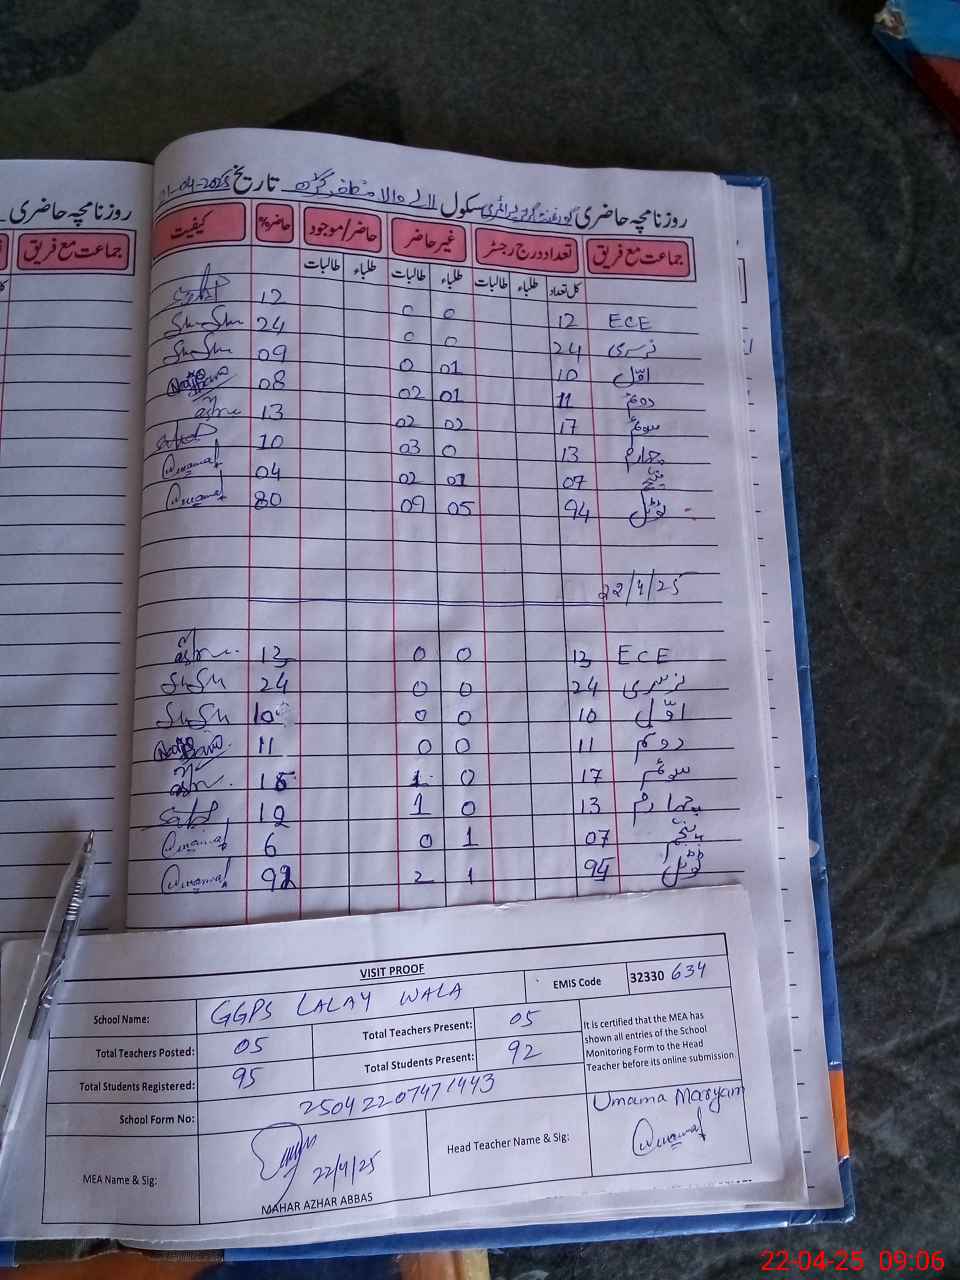 روزنامچہ حاضری
جماعت مع فریق
روزنامچہ حاضری گورنمنٹ گرلز پرائمری سکول لالے والا مظفر گڑھ تاریخ 21-04-2025
جماعت مع فریق تعداد درج رجسٹر غیر حاضر حاضر/موجود حاضر% کیفیت
کل تعداد طلباء طالبات طلباء طالبات طلباء طالبات
ECE 12 0 0 12
نرسری 24 0 0 24
اوّل 10 01 0 09
دوئم 11 01 02 08
سوئم 17 02 02 13
چہارم 13 0 03 10
پنجم 07 01 02 04
ٹوٹل 94 05 09 80
22/4/25
ECE 13 0 0 13
نرسری 24 0 0 24
اوّل 10 0 0 10
دوئم 11 0 0 11
سوئم 17 0 1 16
چہارم 13 0 1 12
پنجم 07 1 0 6
ٹوٹل 95 1 2 92
VISIT PROOF
School Name: GGPS LALAY WALA EMIS Code 32330 634
Total Teachers Posted: 05 Total Teachers Present: 05
Total Students Registered: 95 Total Students Present: 92
It is certified that the MEA has
shown all entries of the School
Monitoring Form to the Head
Teacher before its online submission
School Form No: 25042207471443
MEA Name & Sig: 22/4/25
MAHAR AZHAR ABBAS
Head Teacher Name & Sig: Umama Maryam
22-04-25 09:06